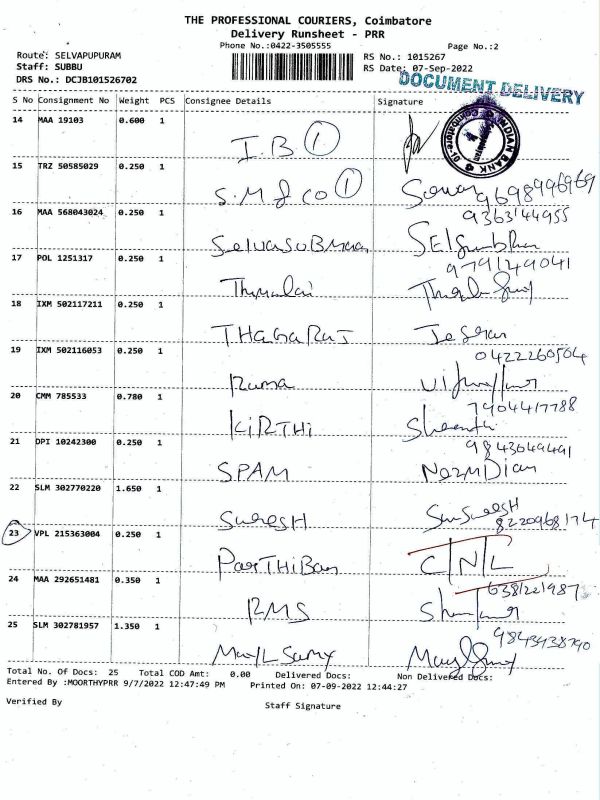 THE PROFESSIONAL COURIERS, Coimbatore
Delivery Runsheet - PRR
Phone No.:0422-3505555
Page No.:2
Route: SELVAPUPURAM
RS No.: 1015267
Staff: SUBBU
RS Date: 07-Sep-2022
DRS No.: DCJB101526702
DOCUMENT DELIVERY
S No Consignment No Weight PCS Consignee Details Signature
14 MAA 19103 0.600 1
I.B ①
INDIAN BANK
15 TRZ 50585029 0.250 1
S.M & CO ①
9698996969
16 MAA 568043024 0.250 1
9363144955
17 POL 1251317 0.250 1
9791249041
18 IXM 502117211 0.250 1
THAGARAJ
19 IXM 502116053 0.250 1
0422260504
Ruma
20 CMM 785533 0.780 1
7904417788
KIRTHI
21 DPI 10242300 0.250 1
9843049491
SPAM
22 SLM 302770220 1.650 1
SURESH
8220968174
23 VPL 215363004 0.250 1
ParTHIBan C/N/L
24 MAA 292651481 0.350 1
6381221987
RMS
25 SLM 302781957 1.350 1
9843938790
Total No. Of Docs: 25 Total COD Amt: 0.00 Delivered Docs: Non Delivered Docs:
Entered By :MOORTHYPRR 9/7/2022 12:47:49 PM Printed On: 07-09-2022 12:44:27
Verified By
Staff Signature